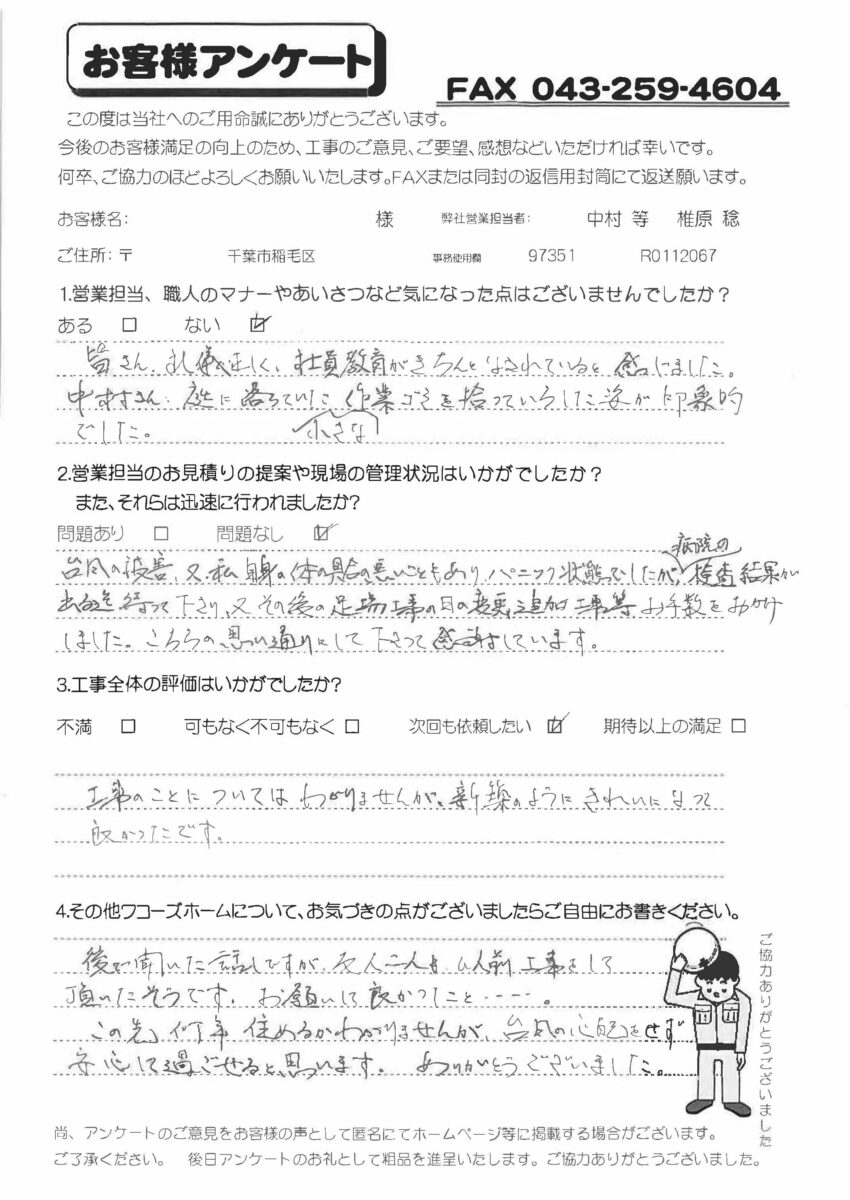 お客様アンケート
FAX 043-259-4604
この度は当社へのご用命誠にありがとうございます。
今後のお客様満足の向上のため、工事のご意見、ご要望、感想などいただければ幸いです。
何卒、ご協力のほどよろしくお願いいたします。FAXまたは同封の返信用封筒にて返送願います。
お客様名: 様 弊社営業担当者: 中村 等 椎原 稔
ご住所:〒 千葉市稲毛区 事務使用欄 97351 R0112067
1.営業担当、職人のマナーやあいさつなど気になった点はございませんでしたか?
ある □ ない ☑
皆さん、礼儀正しく、社員教育がきちんとなされていると感じました。
中村さん、庭に落ちていた小さな作業ゴミを拾っていらした姿が印象的
でした。
2.営業担当のお見積りの提案や現場の管理状況はいかがでしたか?
また、それらは迅速に行われましたか?
問題あり □ 問題なし ☑
台風の被害、又、私自身の体の具合の悪いこともあり、パニック状態でしたが、病院の検査結果が
出る迄待って下さり、又その後の足場工事の日の変更、追加工事等お手数をおかけ
しました。こちらの思い通りにして下さって感謝しています。
3.工事全体の評価はいかがでしたか?
不満 □ 可もなく不可もなく □ 次回も依頼したい ☑ 期待以上の満足 □
工事のことについてはわかりませんが、新築のようにきれいになって
良かったです。
4.その他ワコーズホームについて、お気づきの点がございましたらご自由にお書きください。
後で聞いた話しですが、友人二人も以前工事をして
頂いたそうです。お願いして良かったこと‥‥‥。
この先、何年住めるかわかりませんが、台風の心配をせず
安心して過ごせると思います。ありがとうございました。
ご協力ありがとうございました
尚、アンケートのご意見をお客様の声として匿名にてホームページ等に掲載する場合がございます。
ご了承ください。 後日アンケートのお礼として粗品を進呈いたします。ご協力ありがとうございました。